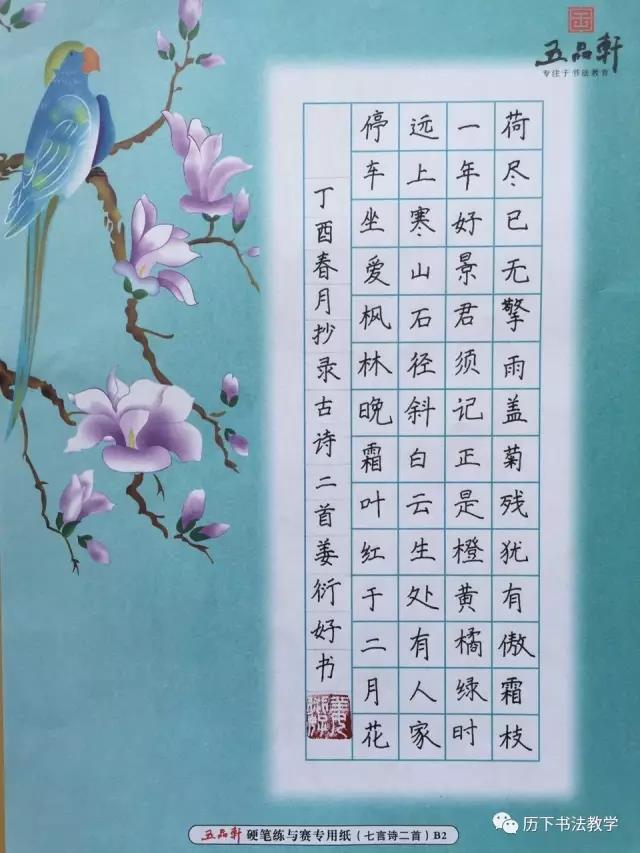 五品軒
专注于书法教育
荷尽已无擎雨盖菊残犹有傲霜枝
一年好景君须记正是橙黄橘绿时
远上寒山石径斜白云生处有人家
停车坐爱枫林晚霜叶红于二月花
丁酉春月抄录古诗二首姜衍好书
五品軒 硬笔练与赛专用纸(七言诗二首) B2
历下书法教学